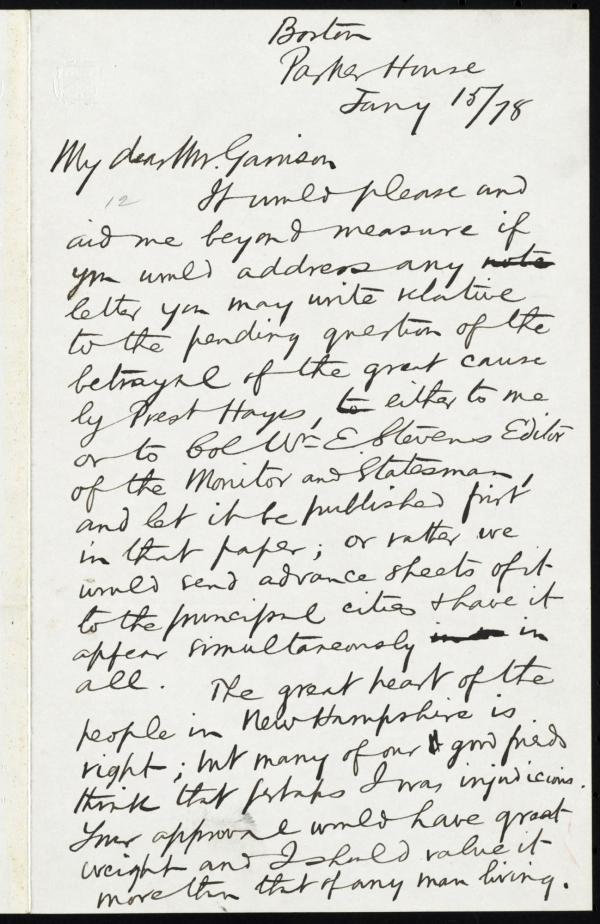 Boston
Parker House
Jany 15/78
My dear Mr. Garrison
12
It would please and
aid me beyond measure if
you would address any note
letter you may write relative
to the pending question of the
betrayal of the great cause
by Prest Hayes, to either to me
or to Col Wm E. Stevens Editor
of the Monitor and Statesman,
and let it be published first
in that paper; or rather we
would send advance sheets of it
to the principal cities & have it
appear simultaneously in
all. The great heart of the
people in New Hampshire is
right; but many of our good friends
think that perhaps I was injudicious.
Your approval would have great
weight and I should value it
more than that of any man living.